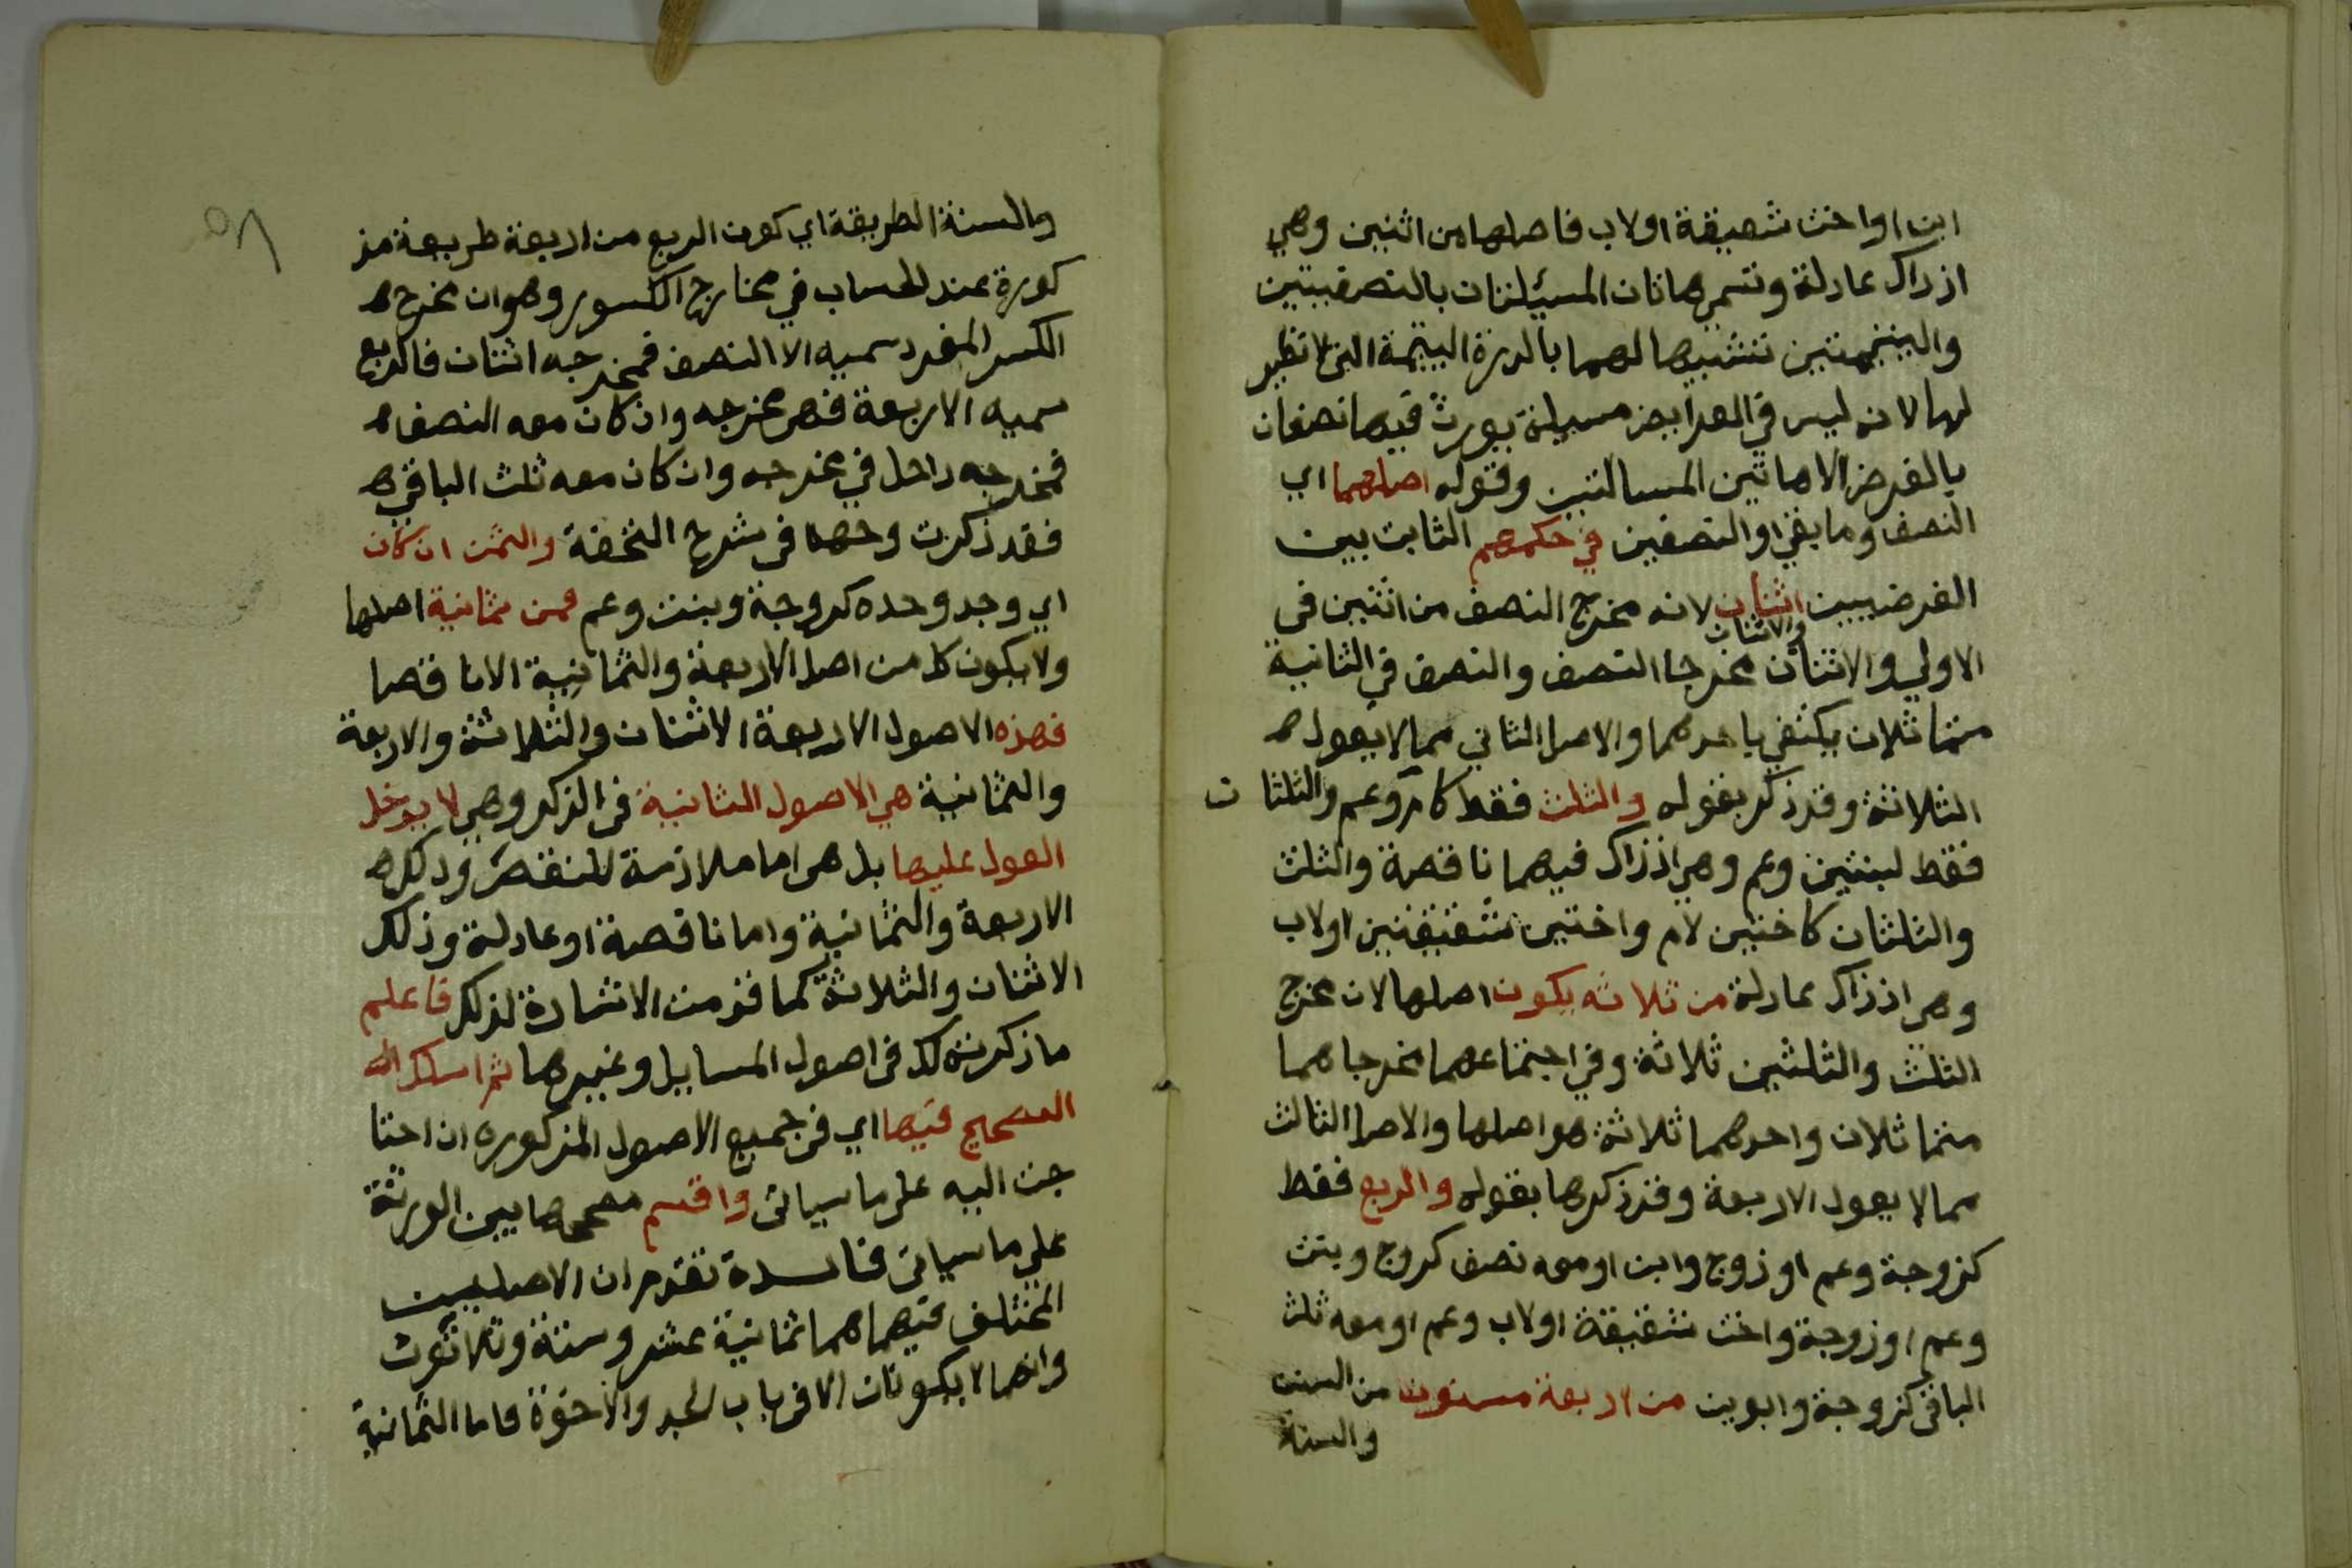 ابن او اخت شقيقة او لاب فاصلها من اثنين وهي
اذ ذاك عادلة وتسمى هاتان المسئلتان بالنصفيتين
واليتيمتين تشبيها لهما بالدرة اليتيمة التي لا نظير
لها لانه ليس في الفرايض مسيلة يورث فيها نصفان
بالفرض الا هاتين المسالتين وقوله اصلهما اي
النصف وما بقي او النصفين في حكمهم الثابت بين
الفرضيين اثنان لانه مخرج النصف من اثنين في
الاولي والاثنان والاثنان مخرجا النصف والنصف في الثانية
متماثلان يكتفي باحدهما والاصل الثاني مما لا يعول
الثلاثة وقد ذكره بقوله والثلث فقط كام وعم والثلثان
فقط لبنتين وعم وهي اذ ذاك فيهما ناقصة والثلث
والثلثان كاختين لام واختين شقيقتين او لاب
وهي اذ ذاك عادلة من ثلاثه يكون اصلها لان مخرج
الثلث والثلثين ثلاثة وفي اجتماعهما مخرجاهما
متماثلان واحدهما ثلاثة هو اصلها والاصل الثالث
مما لا يعول الاربعة وقد ذكرها بقوله والربع فقط
كزوجة وعم او زوج وابن او معه نصف كزوج وبنت
وعم او زوجة واخت شقيقة او لاب وعم او معه ثلث
الباقي كزوجة وابوين من اربعة مسنون من السنن
والسنة
والسنة الطريقة اي كون الربع من اربعة طريقة مذ
كورة عند الحساب في مخارج الكسور وهو ان مخرج
الكسر المفرد سميه الا النصف فمخرجه اثنان فالربع
سميه الاربعة فهي مخرجه وان كان معه النصف
فمخرجه داخل في مخرجه وان كان معه ثلث الباقي
فقد ذكرت وجهه في شرح التحفة والثمن ان كان
اي وجد وحده كزوجة وبنت وعم فمن ثمانية اصلها
ولا يكون كل من اصل الاربعة والثمانية الا ناقصا
فهذه الاصول الاربعة الاثنان والثلاثة والاربعة
والثمانية هي الاصول الثانية في الذكر وهي لا يدخل
العول عليها بل هي اما ملازمة للنقص وذلك
الاربعة والثمانية واما ناقصة او عادلة وذلك
الاثنان والثلاثة كما قدمت الاشارة لذلك فاعلم
ما ذكرته لك في اصول المسايل وغيرها ثم اسلك الت
التصحيح فيها اي في جميع الاصول المذكوره ان احتا
جت اليه على ما سياتي واقسم مصححها بين الورثة
علي ما سياتي فائدة تقدم ان الاصليين
المختلف فيهما هما ثمانية عشر وستة وثلاثون
وانهما لا يكونان الا في باب الجد والاخوة فاما الثمانية